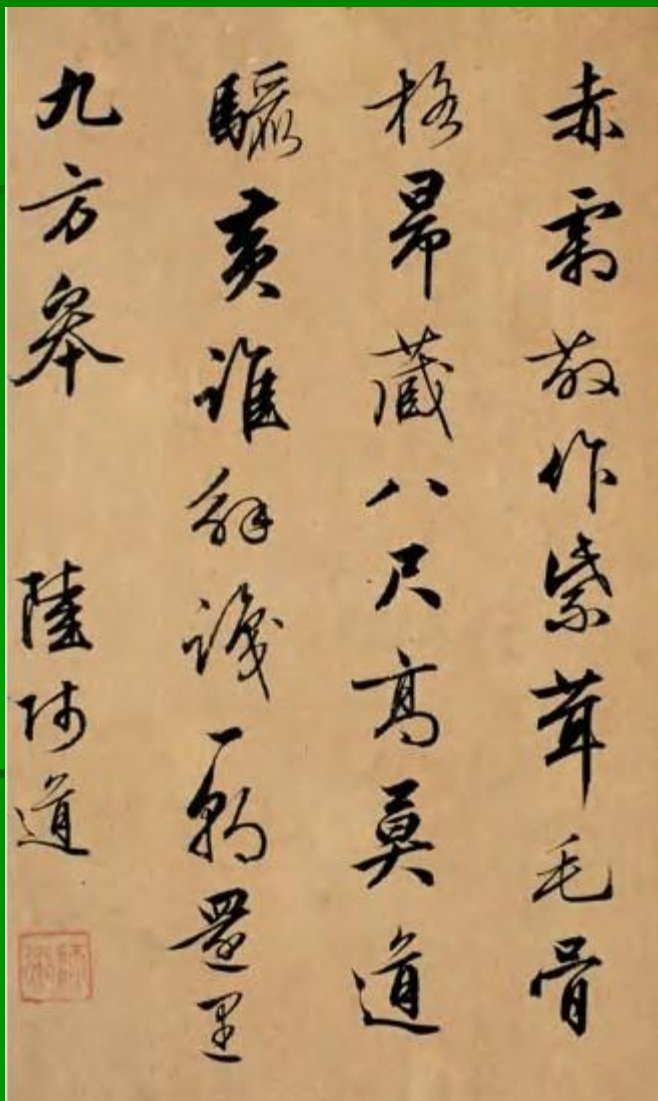 赤霜散作紫茸毛骨
格昂藏八尺高莫道
驪黃誰解識一朝還遇
九方皋 陸師道